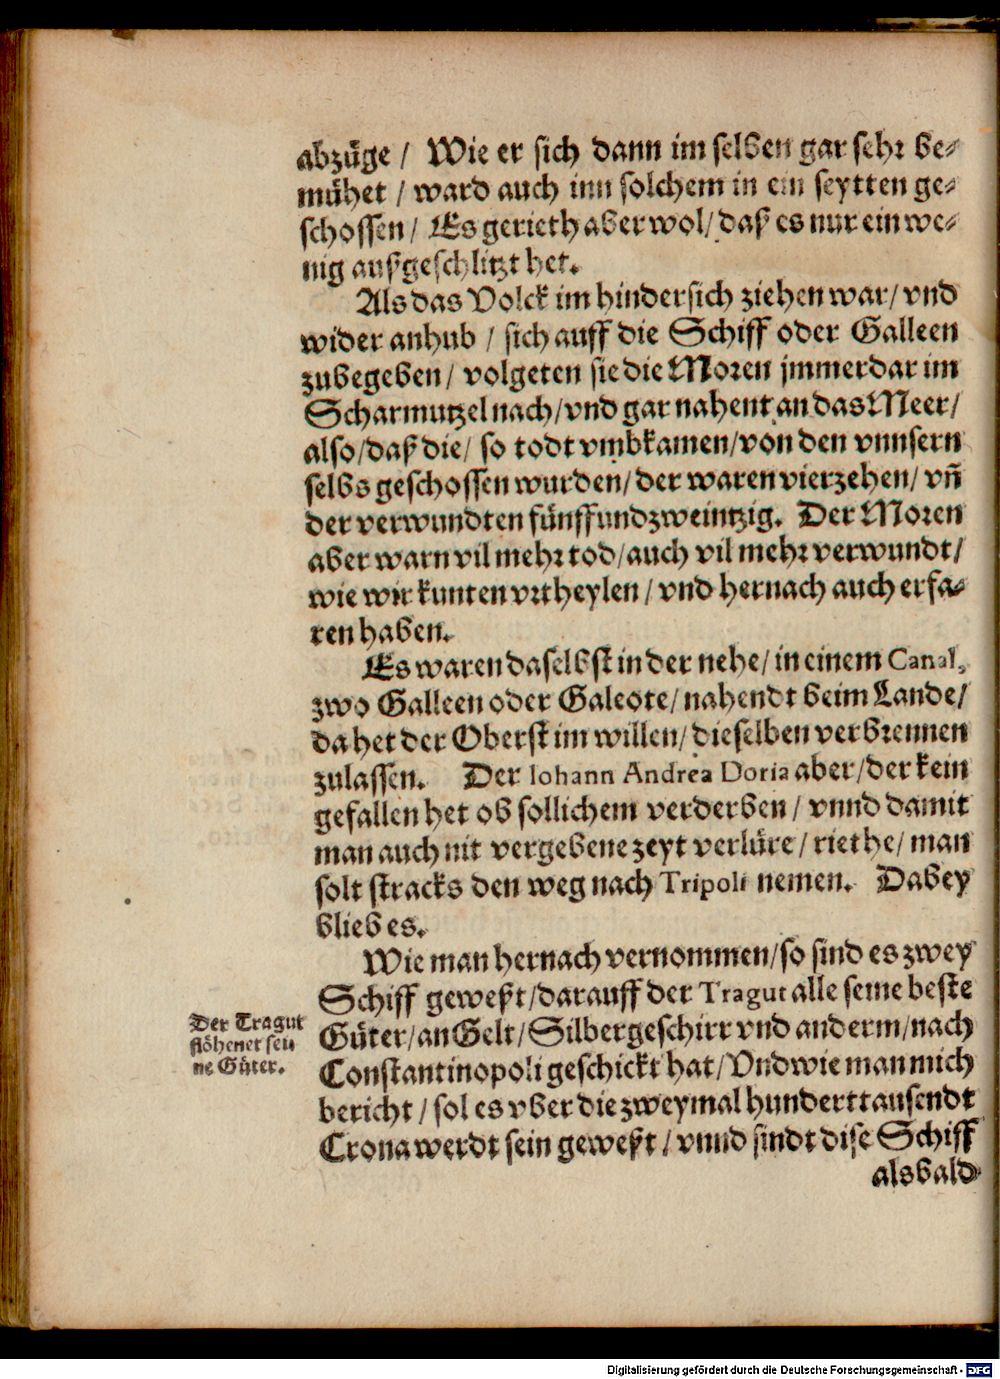 abzüge / Wie er sich dann im selben gar sehr be⸗
mühet / ward auch inn solchem in ein seytten ge⸗
schossen / Es gerieth aber wol / daß es nur ein we⸗
nig auffgeschlitzt het.
Als das Volck im hindersich ziehen war / vnd
wider anhub / sich auff die Schiff oder Galleen
zubegeben / volgeten sie die Moren jmmerdar im
Scharmutzel nach / vnd gar nahent an das Meer /
also / daß die / so todt vmbkamen / von den vnnsern
selbs geschossen wurden / der waren vierzehen / vñ
der verwundten fünffundzweintzig. Der Moren
aber warn vil mehr tod / auch vil mehr verwundt /
wie wir kunten vrtheylen / vnd hernach auch erfa⸗
ren haben.
Es waren daselbst in der nehe / in einem Canal,
zwo Galleen oder Galeote / nahendt beim Lande /
da het der Oberst im willen / dieselben verbrennen
zulassen. Der Iohann Andrea Doria aber / der kein
gefallen het ob sollichem verderben / vnnd damit
man auch nit vergebene zeyt verlüre / riethe / man
solt stracks den weg nach Tripoli nemen. Dabey
blieb es.
Wie man hernach vernommen / so sind es zwey
Schiff geweßt / darauff der Tragut alle seine beste
Güter / an Gelt / Silbergeschirr vnd anderm / nach
Constantinopoli geschickt hat / Vnd wie man mich
bericht / sol es vber die zweymal hunderttausendt
Crona werdt sein geweßt / vnnd sindt dise Schiff
alsbald
Der Tragut
flöhenet sei⸗
ne Güter.
Digitalisierung gefördert durch die Deutsche Forschungsgemeinschaft - DFG